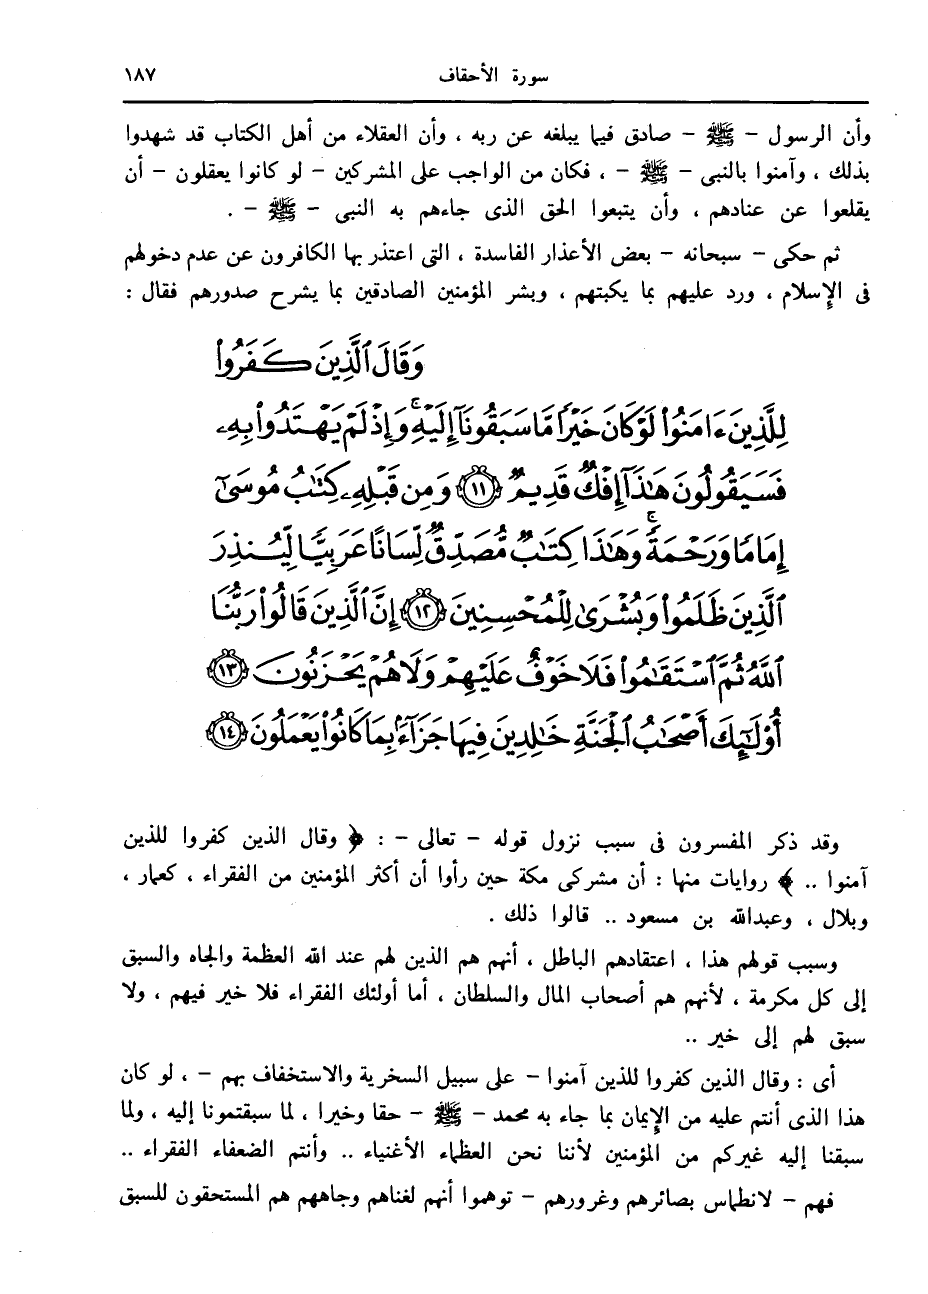 سورة الأحقاف ١٨٧
وأن الرسول – ﷺ – صادق فيما يبلغه عن ربه ، وأن العقلاء من أهل الكتاب قد شهدوا
بذلك ، وآمنوا بالنبى – ﷺ – ، فكان من الواجب على المشركين – لو كانوا يعقلون – أن
يقلعوا عن عنادهم ، وأن يتبعوا الحق الذى جاءهم به النبى – ﷺ – .
ثم حكى – سبحانه – بعض الأعذار الفاسدة ، التى اعتذر بها الكافرون عن عدم دخولهم
فى الإسلام ، ورد عليهم بما يكبتهم ، وبشر المؤمنين الصادقين بما يشرح صدورهم فقال :
وَقَالَ ٱلَّذِينَ كَفَرُوا۟
لِلَّذِينَ ءَامَنُوا۟ لَوْ كَانَ خَيْرًا مَّا سَبَقُونَآ إِلَيْهِ ۚ وَإِذْ لَمْ يَهْتَدُوا۟ بِهِۦ
فَسَيَقُولُونَ هَٰذَآ إِفْكٌ قَدِيمٌ ﴿١١﴾ وَمِن قَبْلِهِۦ كِتَٰبُ مُوسَىٰٓ
إِمَامًا وَرَحْمَةً ۚ وَهَٰذَا كِتَٰبٌ مُّصَدِّقٌ لِّسَانًا عَرَبِيًّا لِّيُنذِرَ
ٱلَّذِينَ ظَلَمُوا۟ وَبُشْرَىٰ لِلْمُحْسِنِينَ ﴿١٢﴾ إِنَّ ٱلَّذِينَ قَالُوا۟ رَبُّنَا
ٱللَّهُ ثُمَّ ٱسْتَقَٰمُوا۟ فَلَا خَوْفٌ عَلَيْهِمْ وَلَا هُمْ يَحْزَنُونَ ﴿١٣﴾
أُو۟لَٰٓئِكَ أَصْحَٰبُ ٱلْجَنَّةِ خَٰلِدِينَ فِيهَا جَزَآءًۢ بِمَا كَانُوا۟ يَعْمَلُونَ ﴿١٤﴾
وقد ذكر المفسرون فى سبب نزول قوله – تعالى – : ﴿ وقال الذين كفروا للذين
آمنوا .. ﴾ روايات منها : أن مشركى مكة حين رأوا أن أكثر المؤمنين من الفقراء ، كعمار ،
وبلال ، وعبدالله بن مسعود .. قالوا ذلك .
وسبب قولهم هذا ، اعتقادهم الباطل ، أنهم هم الذين لهم عند الله العظمة والجاه والسبق
إلى كل مكرمة ، لأنهم هم أصحاب المال والسلطان ، أما أولئك الفقراء فلا خير فيهم ، ولا
سبق لهم إلى خير ..
أى : وقال الذين كفروا للذين آمنوا – على سبيل السخرية والاستخفاف بهم – ، لو كان
هذا الذى أنتم عليه من الإيمان بما جاء به محمد – ﷺ – حقا وخيرا ، لما سبقتمونا إليه ، ولما
سبقنا إليه غيركم من المؤمنين لأننا نحن العظماء الأغنياء .. وأنتم الضعفاء الفقراء ..
فهم – لانطماس بصائرهم وغرورهم – توهموا أنهم لغناهم وجاههم هم المستحقون للسبق